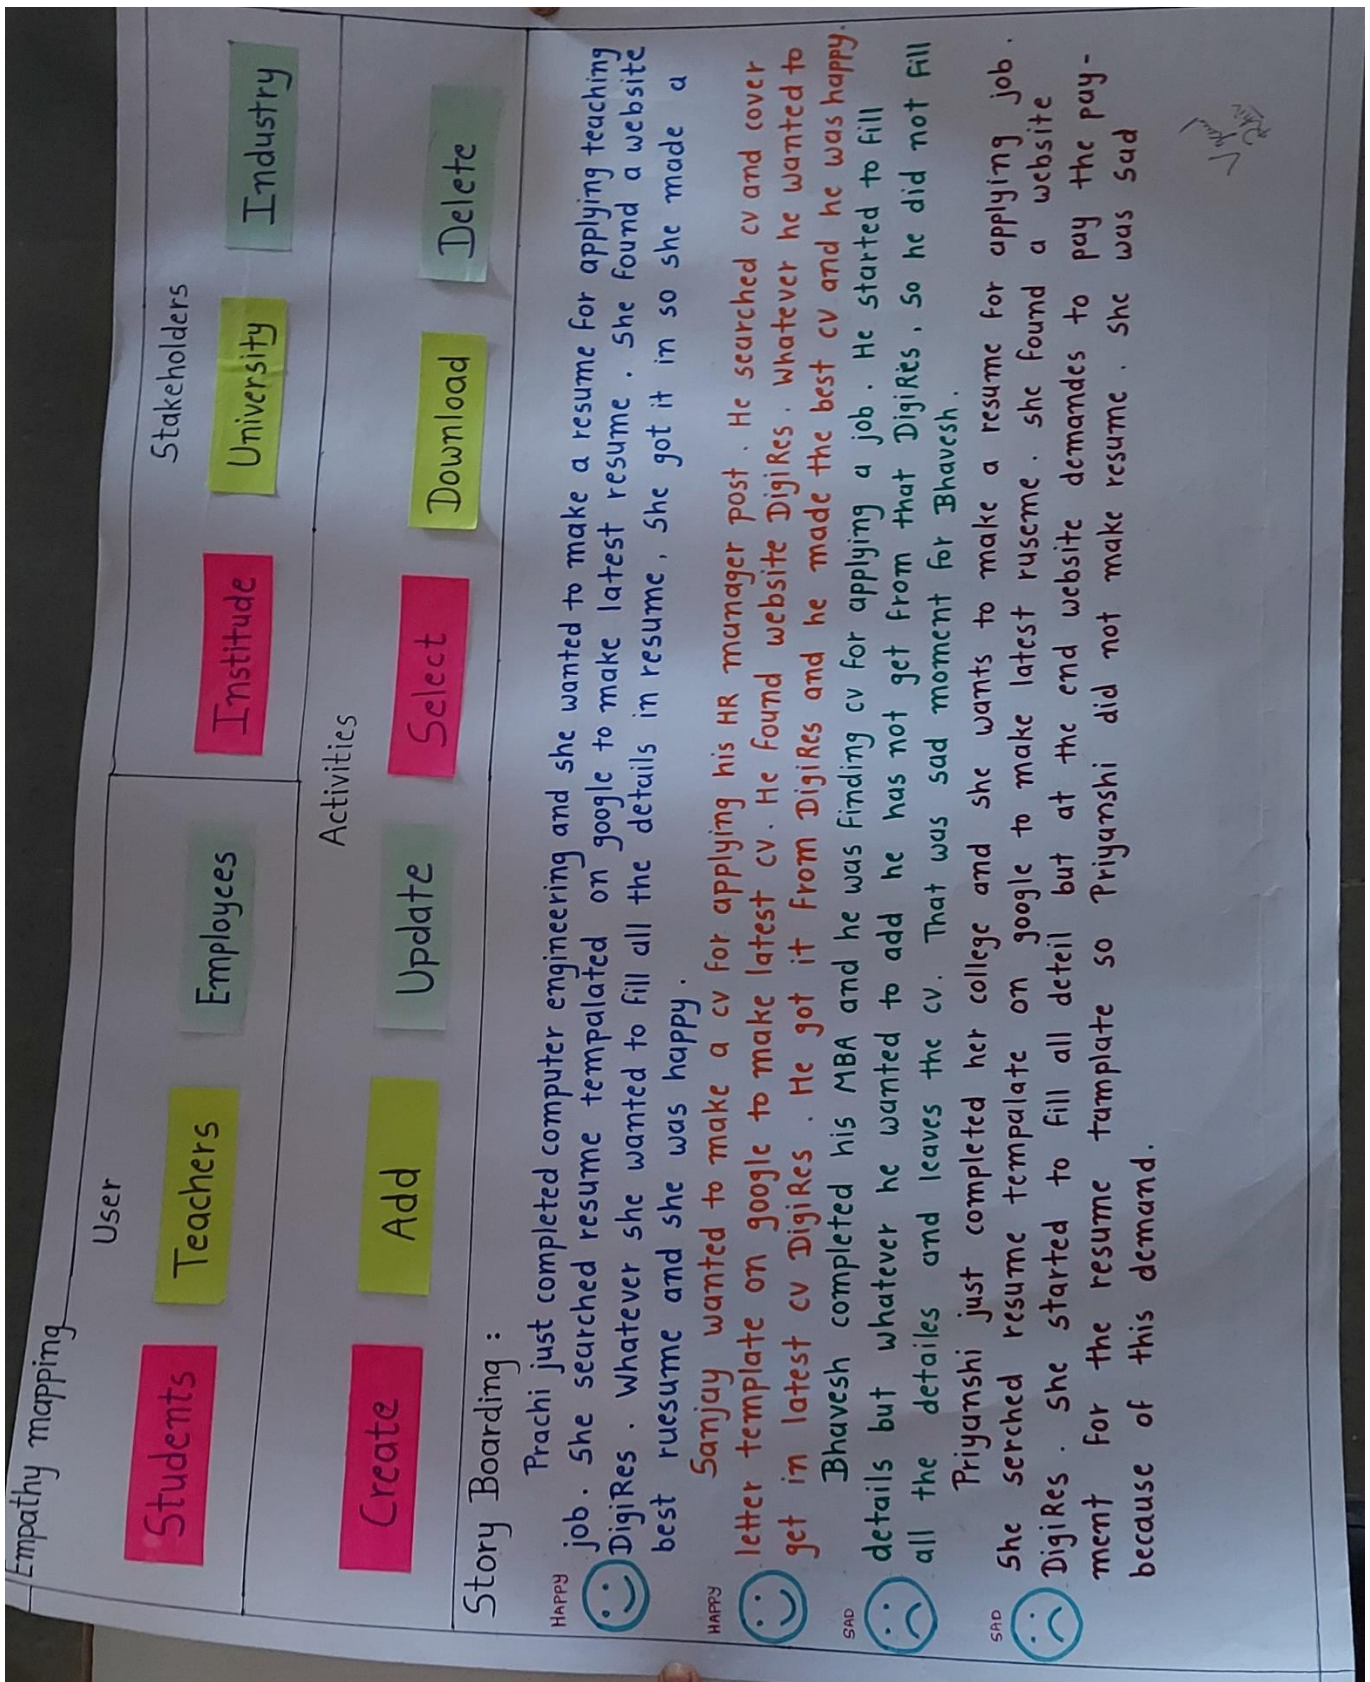 Empathy mapping
User
Stakeholders
Students
Teachers
Employees
Institude
University
Industry
Activities
Create
Add
Update
Select
Download
Delete
Story Boarding :
HAPPY
Prachi just completed computer engineering and she wanted to make a resume for applying teaching
job. She searched resume tempalated on google to make latest resume. She found a website
DigiRes. Whatever she wanted to fill all the details in resume, She got it in so she made a
best ruesume and she was happy.
HAPPY
Sanjay wanted to make a cv for applying his HR manager post. He searched cv and cover
letter template on google to make latest cv. He found website DigiRes. Whatever he wanted to
get in latest cv DigiRes. He got it from DigiRes and he made the best cv and he was happy.
SAD
Bhavesh completed his MBA and he was finding cv for applying a job. He started to fill
details but whatever he wanted to add he has not get from that DigiRes, So he did not fill
all the detailes and leaves the cv. That was sad moment for Bhavesh.
SAD
Priyanshi just completed her college and she wants to make a resume for applying job.
She serched resume tempalate on google to make latest ruseme. she found a website
DigiRes. She started to fill all deteil but at the end website demandes to pay the pay-
ment for the resume tamplate so Priyanshi did not make resume. she was sad
because of this demand.